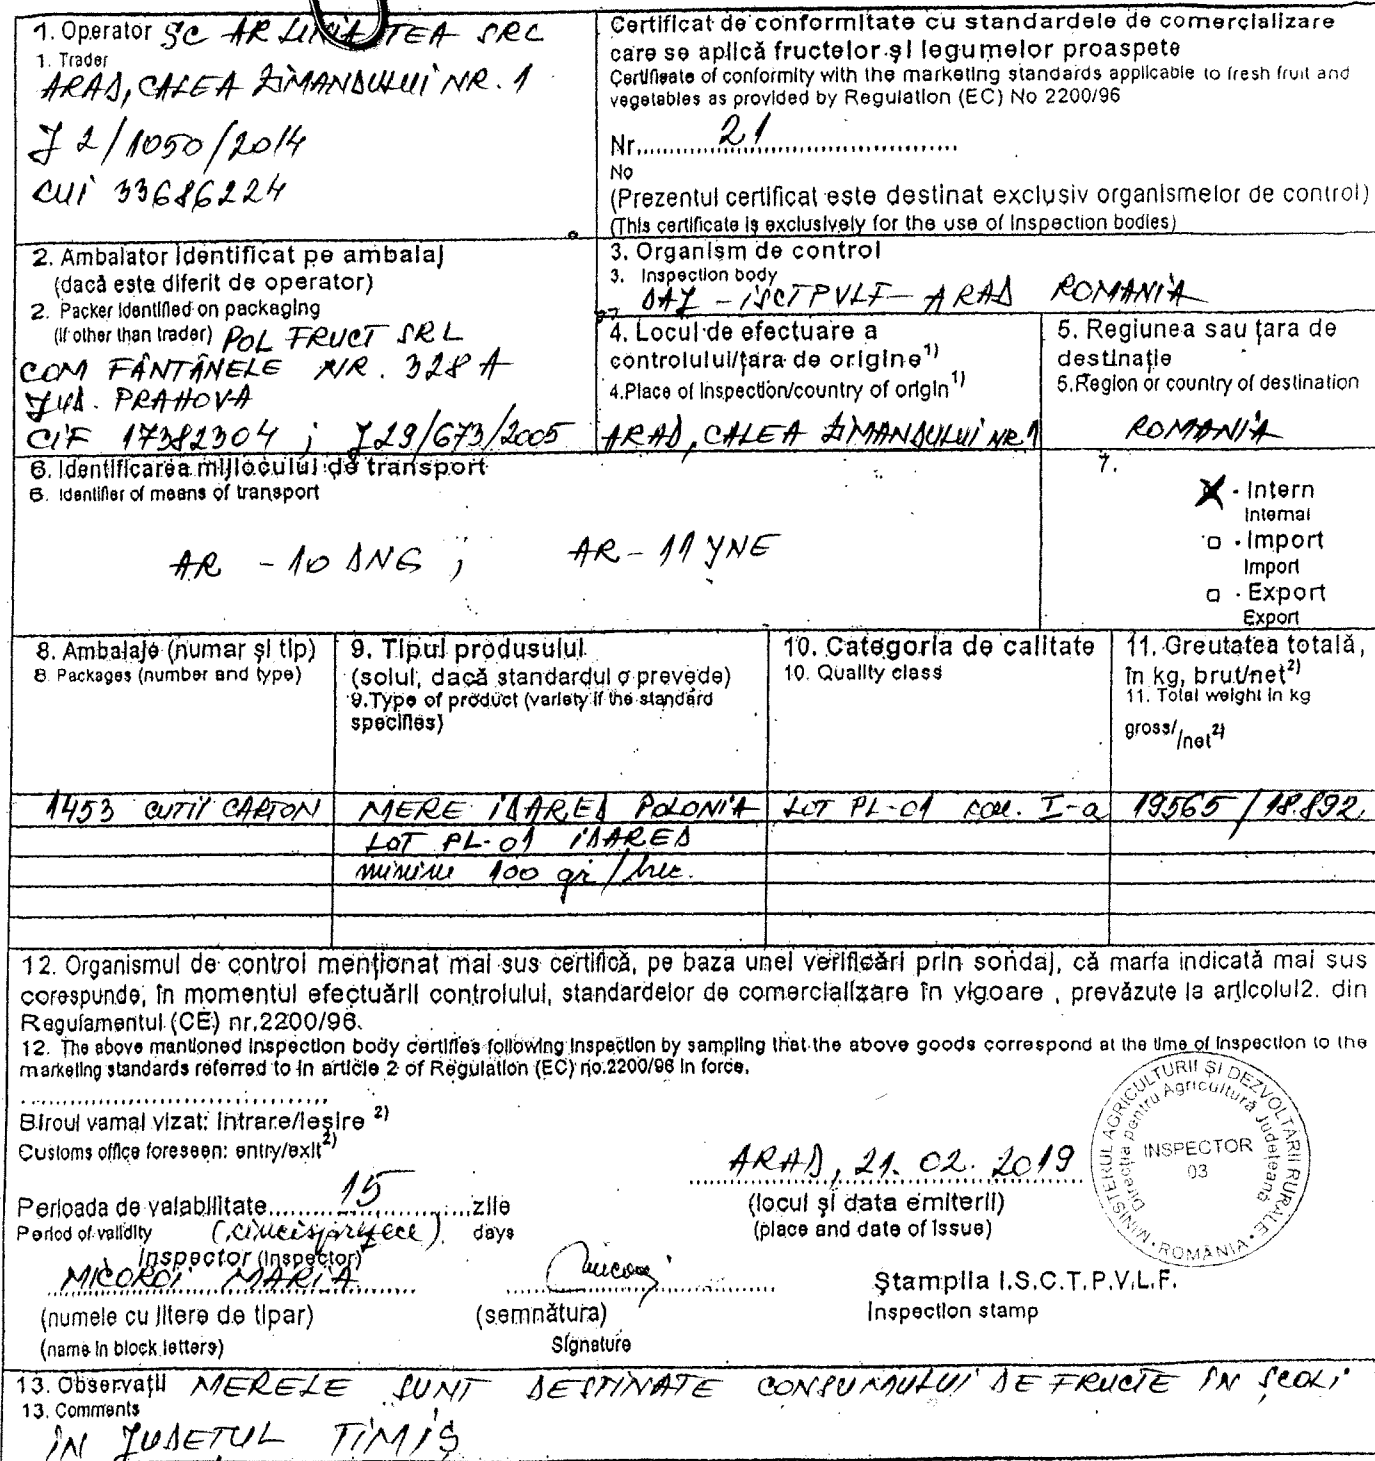 1. Operator SC AR TEA SRL
1. Trader
ARAD, CALEA ZIMANDULUI NR. 1
J 2/1050/2014
CUI 33686224
Certificat de conformitate cu standardele de comercializare
care se aplică fructelor și legumelor proaspete
Certificate of conformity with the marketing standards applicable to fresh fruit and
vegetables as provided by Regulation (EC) No 2200/96
Nr.......21.......
No
(Prezentul certificat este destinat exclusiv organismelor de control)
(This certificate is exclusively for the use of inspection bodies)
2. Ambalator identificat pe ambalaj
(dacă este diferit de operator)
2. Packer identified on packaging
(if other than trader) POL FRUCT SRL
COM FÂNTÂNELE NR. 328 A
JUD. PRAHOVA
CIF 17382304 ; J29/673/2005
3. Organism de control
3. Inspection body
DAJ - ISCTPVLF - ARAD ROMANIA
4. Locul de efectuare a
controlului/țara de origine 1)
4.Place of inspection/country of origin 1)
ARAD, CALEA ZIMANDULUI NR.1
5. Regiunea sau țara de
destinație
5.Region or country of destination
ROMANIA
6. Identificarea mijlocului de transport
6. Identifier of means of transport
AR - 10 DNG ; AR - 11 YNE
7.
X - Intern
Internal
□ - Import
Import
□ - Export
Export
8. Ambalaje (numar și tip)
8. Packages (number and type)
9. Tipul produsului
(soiul, dacă standardul o prevede)
9.Type of product (variety if the standard
specifies)
10. Categoria de calitate
10. Quality class
11. Greutatea totală,
în kg, brut/net 2)
11. Total weight in kg
gross/ /net 2)
1453 CUTII CARTON MERE IDARED POLONIA LOT PL-01 cal. I-a 19565 / 18.892.
LOT PL-01 IDARED
minim 100 gr/buc.
12. Organismul de control menționat mai sus certifică, pe baza unei verificări prin sondaj, că marfa indicată mai sus
corespunde, în momentul efectuării controlului, standardelor de comercializare în vigoare , prevăzute la articolul2. din
Regulamentul (CE) nr.2200/96.
12. The above mentioned inspection body certifies following inspection by sampling that the above goods correspond at the time of inspection to the
marketing standards referred to in article 2 of Regulation (EC) no.2200/96 in force.
Biroul vamal vizat: intrare/ieșire 2)
Customs office foreseen: entry/exit 2)
Perioada de valabilitate.......15.......zile
Period of validity (cincisprezece) days
ARAD, 21. 02. 2019
(locul și data emiterii)
(place and date of issue)
MINISTERUL AGRICULTURII ȘI DEZVOLTĂRII RURALE · ROMÂNIA ·
Direcția pentru Agricultură Județeană
INSPECTOR
03
Inspector (Inspector)
MICOROI MARIA
(numele cu litere de tipar)
(name in block letters)
(semnătura)
Signature
Ștampila I.S.C.T.P.V.L.F.
Inspection stamp
13. Observații MERELE SUNT DESTINATE CONSUMULUI DE FRUCTE ÎN ȘCOLI
13. Comments
ÎN JUDETUL TIMIȘ